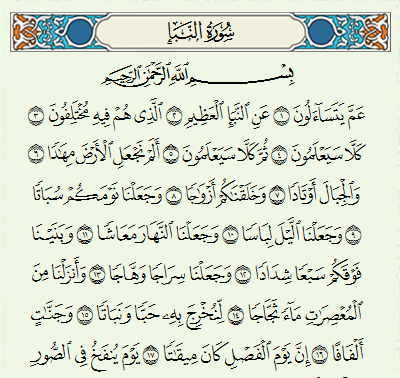 سُورَةُ النَّبَإِ
بِسْمِ اللَّهِ الرَّحْمَٰنِ الرَّحِيمِ
عَمَّ يَتَسَاءَلُونَ ١ عَنِ النَّبَإِ الْعَظِيمِ ٢ الَّذِي هُمْ فِيهِ مُخْتَلِفُونَ ٣
كَلَّا سَيَعْلَمُونَ ٤ ثُمَّ كَلَّا سَيَعْلَمُونَ ٥ أَلَمْ نَجْعَلِ الْأَرْضَ مِهَادًا ٦
وَالْجِبَالَ أَوْتَادًا ٧ وَخَلَقْنَاكُمْ أَزْوَاجًا ٨ وَجَعَلْنَا نَوْمَكُمْ سُبَاتًا
٩ وَجَعَلْنَا اللَّيْلَ لِبَاسًا ١٠ وَجَعَلْنَا النَّهَارَ مَعَاشًا ١١ وَبَنَيْنَا
فَوْقَكُمْ سَبْعًا شِدَادًا ١٢ وَجَعَلْنَا سِرَاجًا وَهَّاجًا ١٣ وَأَنزَلْنَا مِنَ
الْمُعْصِرَاتِ مَاءً ثَجَّاجًا ١٤ لِّنُخْرِجَ بِهِ حَبًّا وَنَبَاتًا ١٥ وَجَنَّاتٍ
أَلْفَافًا ١٦ إِنَّ يَوْمَ الْفَصْلِ كَانَ مِيقَاتًا ١٧ يَوْمَ يُنفَخُ فِي الصُّورِ